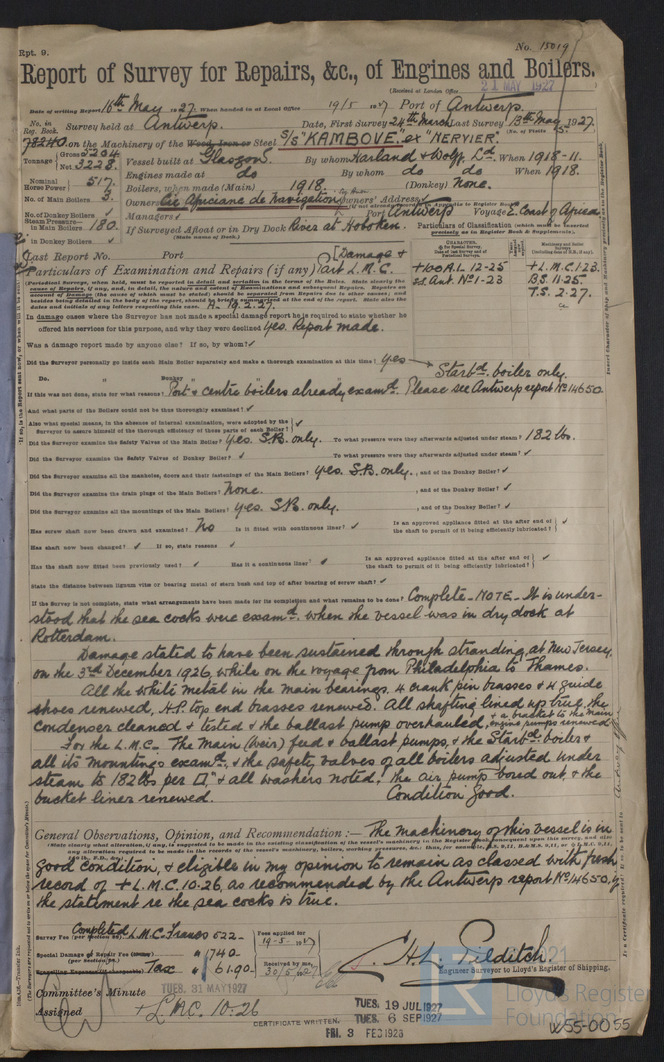 Rpt. 9.
No. 15019
Report of Survey for Repairs, &c., of Engines and Boilers.
(Received at London Office 21 MAY 1927
Date of writing Report 16th May 1927. When handed in at Local Office 19/5 1927 Port of Antwerp.
No. in Reg. Book. Survey held at Antwerp. Date, First Survey 24th March Last Survey 13th May 1927.
(No. of Visits 15
78240 on the Machinery of the Wood, Iron or Steel S/S "KAMBOVE" ex "NERVIER"
Tonnage Gross 5234 Net 3228
Vessel built at Glasgow. By whom Harland & Wolff Ld. When 1918-11.
Engines made at do By whom do do When 1918.
Nominal Horse Power 517.
Boilers, when made (Main) 1918. (Donkey) None.
No. of Main Boilers 3.
Owners Cie Africaine de Navigation Owners' Address
No. of Donkey Boilers ✓
Managers ✓ Port Antwerp Voyage E. Coast of Africa
Steam Pressure in Main Boilers 180.
If Surveyed Afloat or in Dry Dock River at Hoboken.
(State name of Dock.)
in Donkey Boilers ✓
Particulars of Classification (which must be inserted precisely as in Register Book & Supplements).
Last Report No. Port
Particulars of Examination and Repairs (if any) [Damage & Part L.M.C.
+100 A.1. 12-25
sd. Ant. No 1-23
+ L.M.C. 1-23.
B.S. 11-25.
T.S. 2-27.
In damage cases where the Surveyor has not made a special damage report he is required to state whether he
offered his services for this purpose, and why they were declined yes. Report made.
Was a damage report made by anyone else? If so, by whom? ✓
Did the Surveyor personally go inside each Main Boiler separately and make a thorough examination at this time? yes → Starbd. boiler only.
Do. " Donkey " "
If this was not done, state for what reasons? Port & centre boilers already examd. Please see Antwerp report No 14650
And what parts of the Boilers could not be thus thoroughly examined? ✓
Also what special means, in the absence of internal examination, were adopted by the
Surveyor to assure himself of the thorough efficiency of those parts of each Boiler? ✓
Did the Surveyor examine the Safety Valves of the Main Boiler? yes. S.B. only. To what pressure were they afterwards adjusted under steam? 182 lbs.
Did the Surveyor examine the Safety Valves of the Donkey Boiler? ✓ To what pressure were they afterwards adjusted under steam? ✓
Did the Surveyor examine all the manholes, doors and their fastenings of the Main Boilers? yes. S.B. only. , and of the Donkey Boiler? ✓
Did the Surveyor examine the drain plugs of the Main Boilers? None. , and of the Donkey Boiler? ✓
Did the Surveyor examine all the mountings of the Main Boilers? yes. S.B. only. , and of the Donkey Boiler? ✓
Has screw shaft now been drawn and examined? No Is it fitted with continuous liner? ✓ Is an approved appliance fitted at the after end of
the shaft to permit of it being efficiently lubricated? ✓
Has shaft now been changed? ✓ If so, state reasons ✓
Has the shaft now fitted been previously used? ✓ Has it a continuous liner? ✓ Is an approved appliance fitted at the after end of
the shaft to permit of it being efficiently lubricated? ✓
State the distance between lignum vitæ or bearing metal of stern bush and top of after bearing of screw shaft? ✓
If the Survey is not complete, state what arrangements have been made for its completion and what remains to be done? Complete - NOTE - It is under-
stood that the sea cocks were examd. when the vessel was in dry dock at
Rotterdam.
Damage stated to have been sustained through stranding, at New Jersey,
on the 3rd December 1926, while on the voyage from Philadelphia to Thames.
All the white metal in the main bearings, 4 crank pin brasses & 4 guide
shoes renewed, H.P. top end brasses renewed. All shafting lined up true, the
condenser cleaned & tested & the ballast pump overhauled, & a bracket to the main engine pumps renewed
For the L.M.C. The main (weir) feed & ballast pumps, & the Starbd. boiler &
all its mountings examd., & the safety valves of all boilers adjusted under
steam to 182 lbs per □," & all washers noted, the air pump bored out, & the
bucket liner renewed. Condition Good.
General Observations, Opinion, and Recommendation :— The machinery of this vessel is in
good condition, & eligible in my opinion to remain as classed with fresh
record of + L.M.C. 10.26, as recommended by the Antwerp report No 14650, if
the statement re the sea cocks is true.
Survey Fee Completed L.M.C. Francs 522-
Special Damage or Repair Fee " 740
Tax " 61.90-
Fees applied for 19-5-1927
Received by me, 30/5 1927
H.L. Pilditch.
Engineer Surveyor to Lloyd's Register of Shipping.
Committee's Minute TUES. 31 MAY 1927
TUES. 19 JUL 1927
TUES. 6 SEP 1927
Assigned + L.M.C. 10.26
CERTIFICATE WRITTEN.
FRI. 3 FEB 1928
Lloyd's Register
Foundation
W55-0055